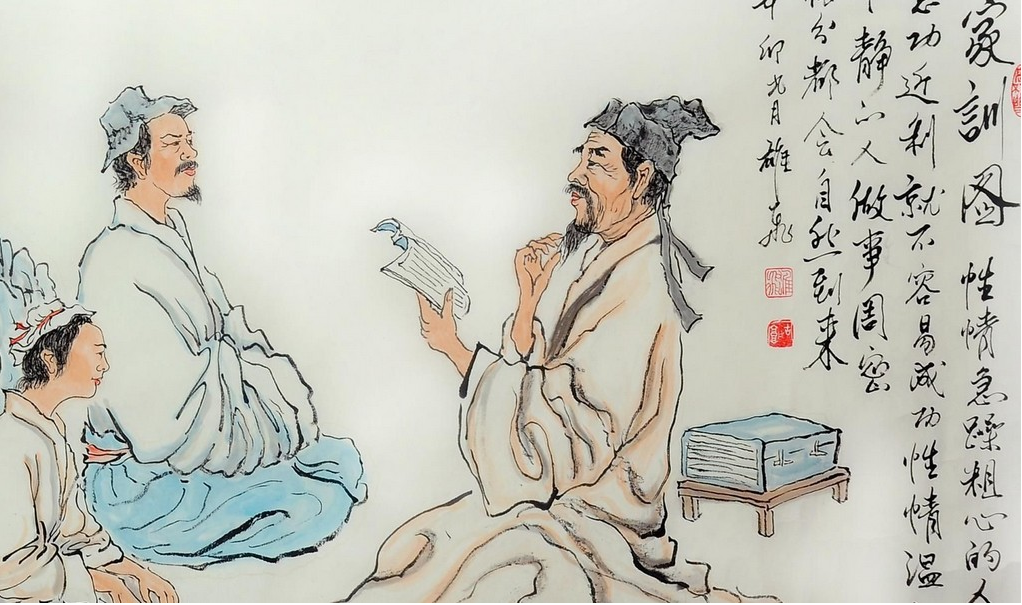 家訓图 性情急躁粗心的人
功近利就不容易成功性情温
静的人做事周密
分都会自然到来
卯九月雄飛